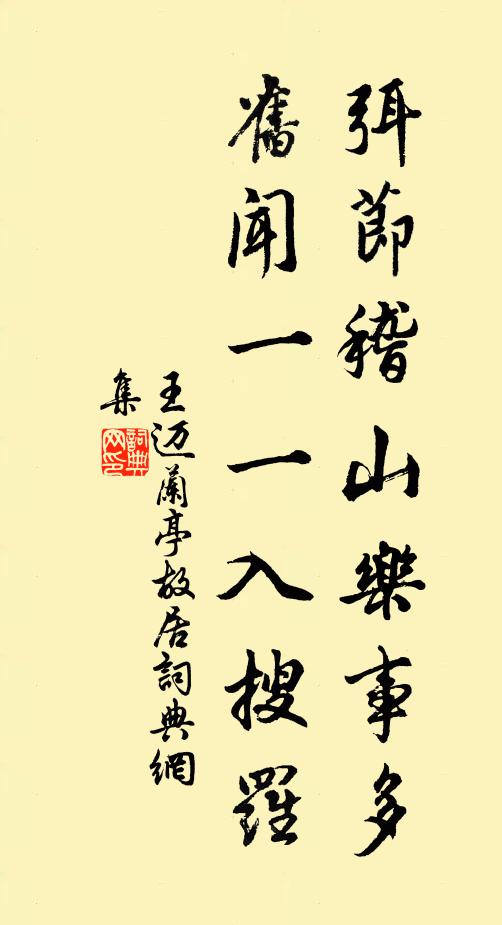 弭節稽山樂事多
舊聞一一入搜羅
王迈蘭亭故居詞典網
集
詞典网印